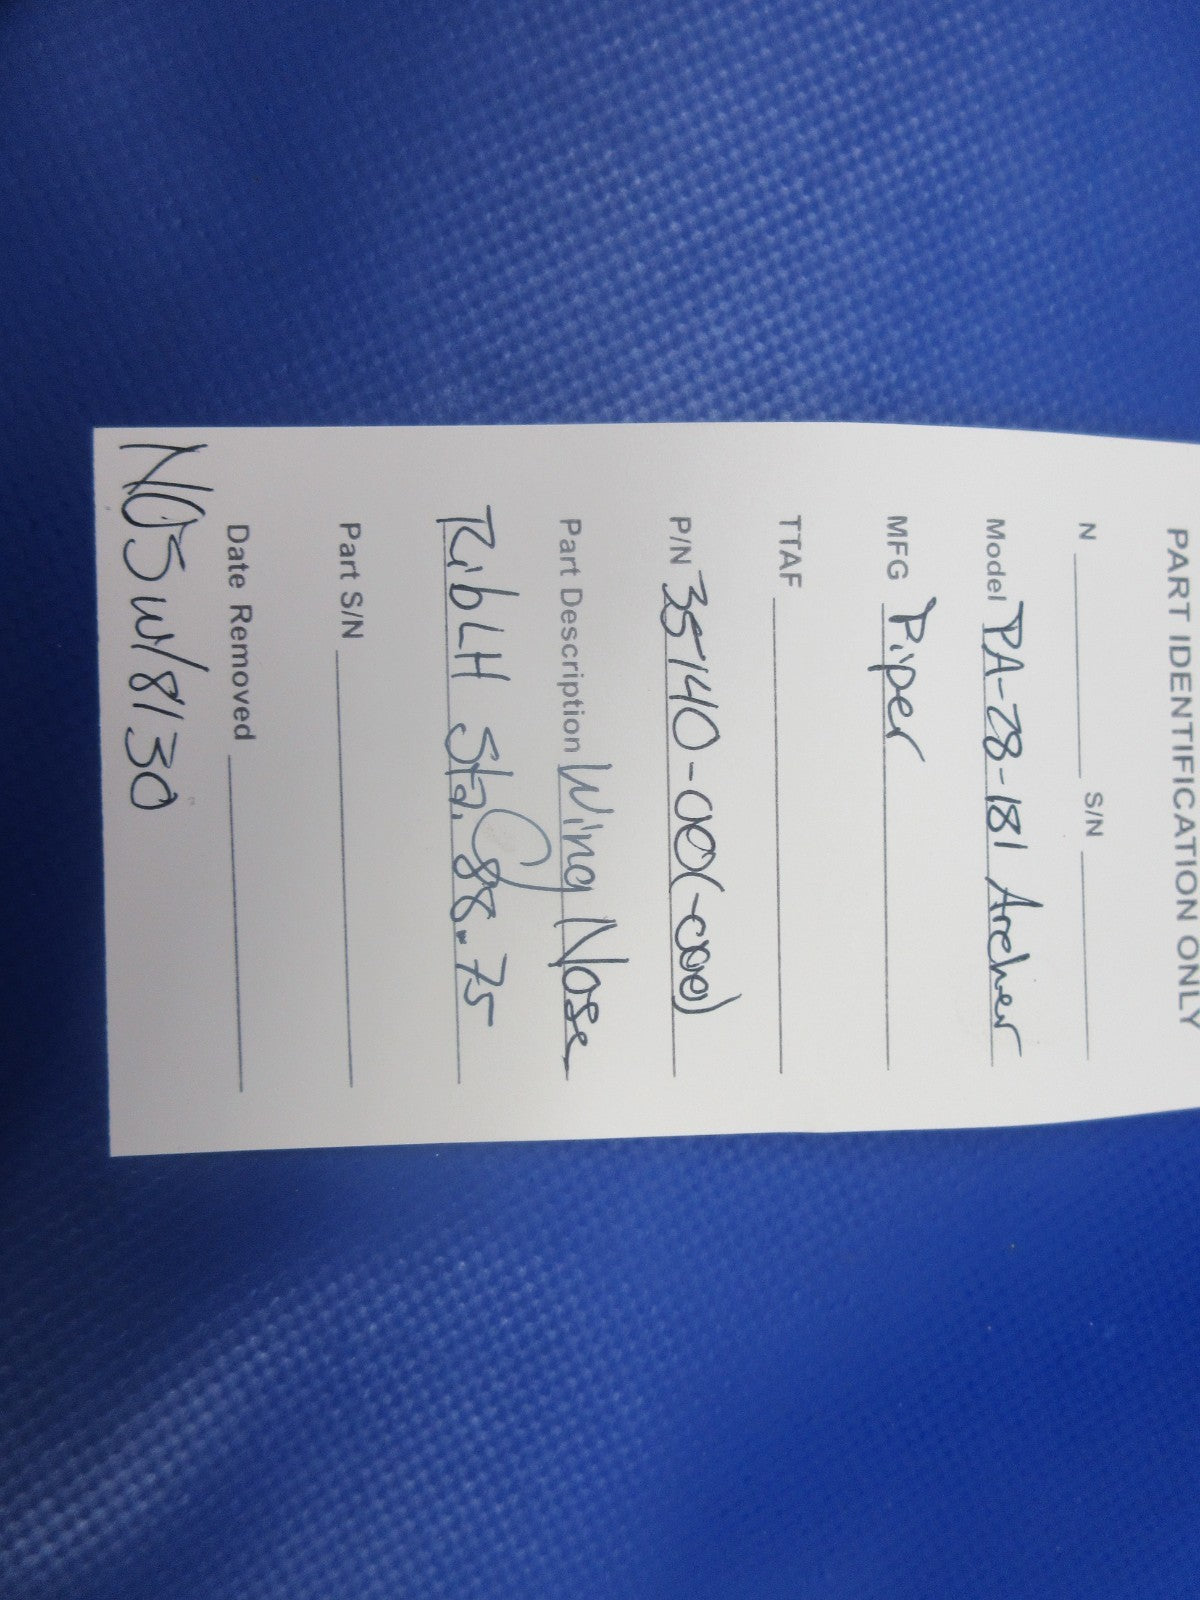 PART IDENTIFICATION ONLY
N S/N
Model PA-28-181 Archer
MFG Piper
TTAF
P/N 35140-00(-000)
Part Description Wing Nose
Rib LH Sta. 88.75
Part S/N
Date Removed
NOS w/8130